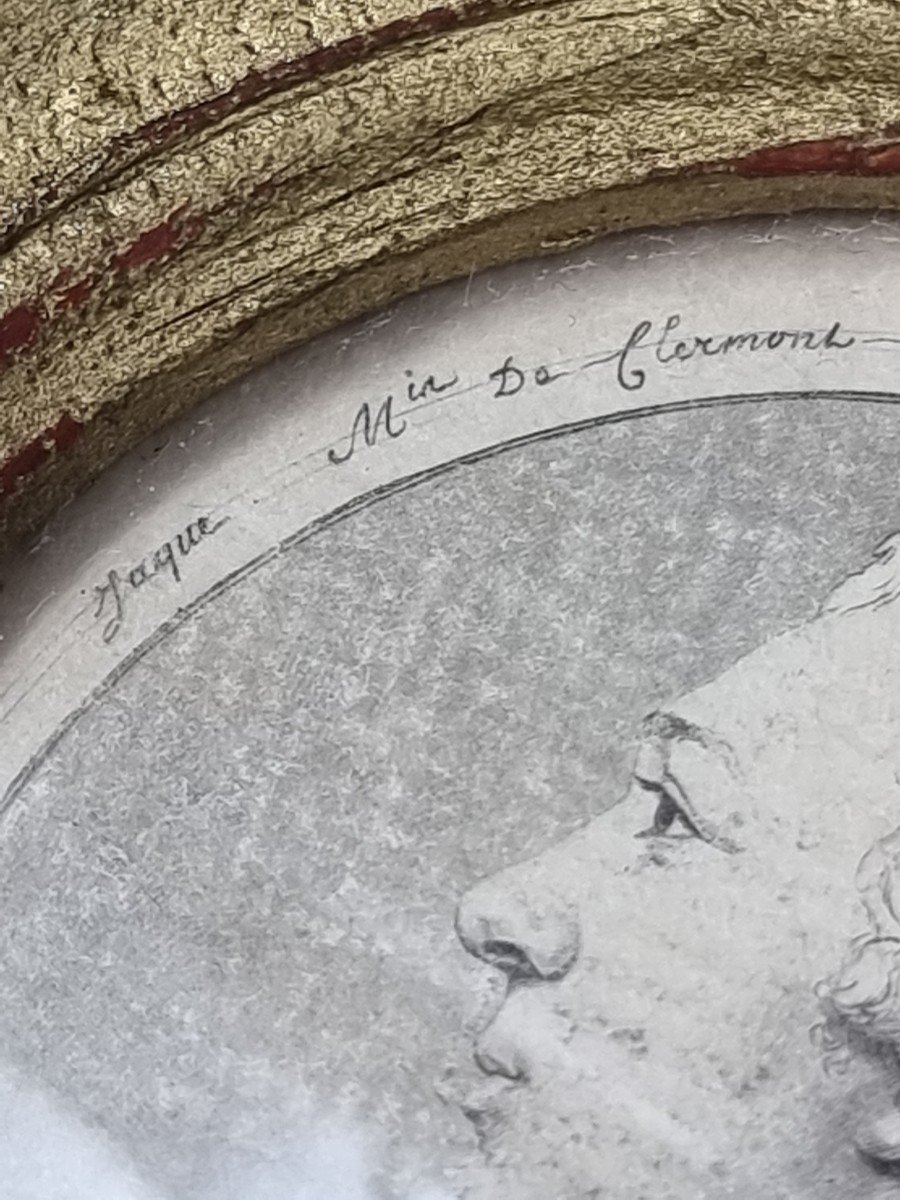 Jaque Min De Clermont